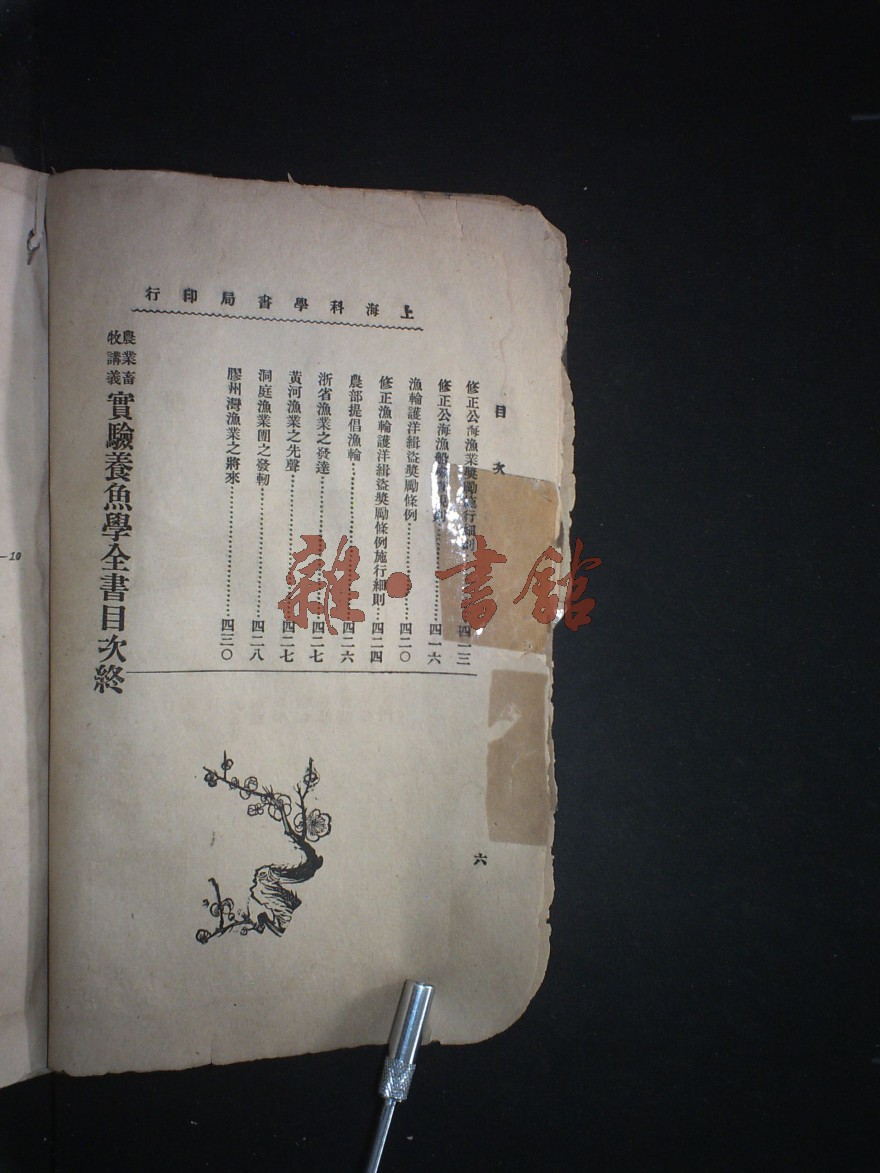 上海科學書局印行
目次
修正公海漁業獎勵施行細則 四一三
修正公海漁船 四一六
漁輪護洋緝盜獎勵條例 四二〇
修正漁輪護洋緝盜獎勵條例施行細則 四二四
農部提倡漁輪 四二六
浙省漁業之發達 四二七
黃河漁業之先聲 四二七
洞庭漁業團之發軔 四二八
膠州灣漁業之將來 四三〇
農業畜牧講義 實驗養魚學全書目次終
六
雜·書館
10